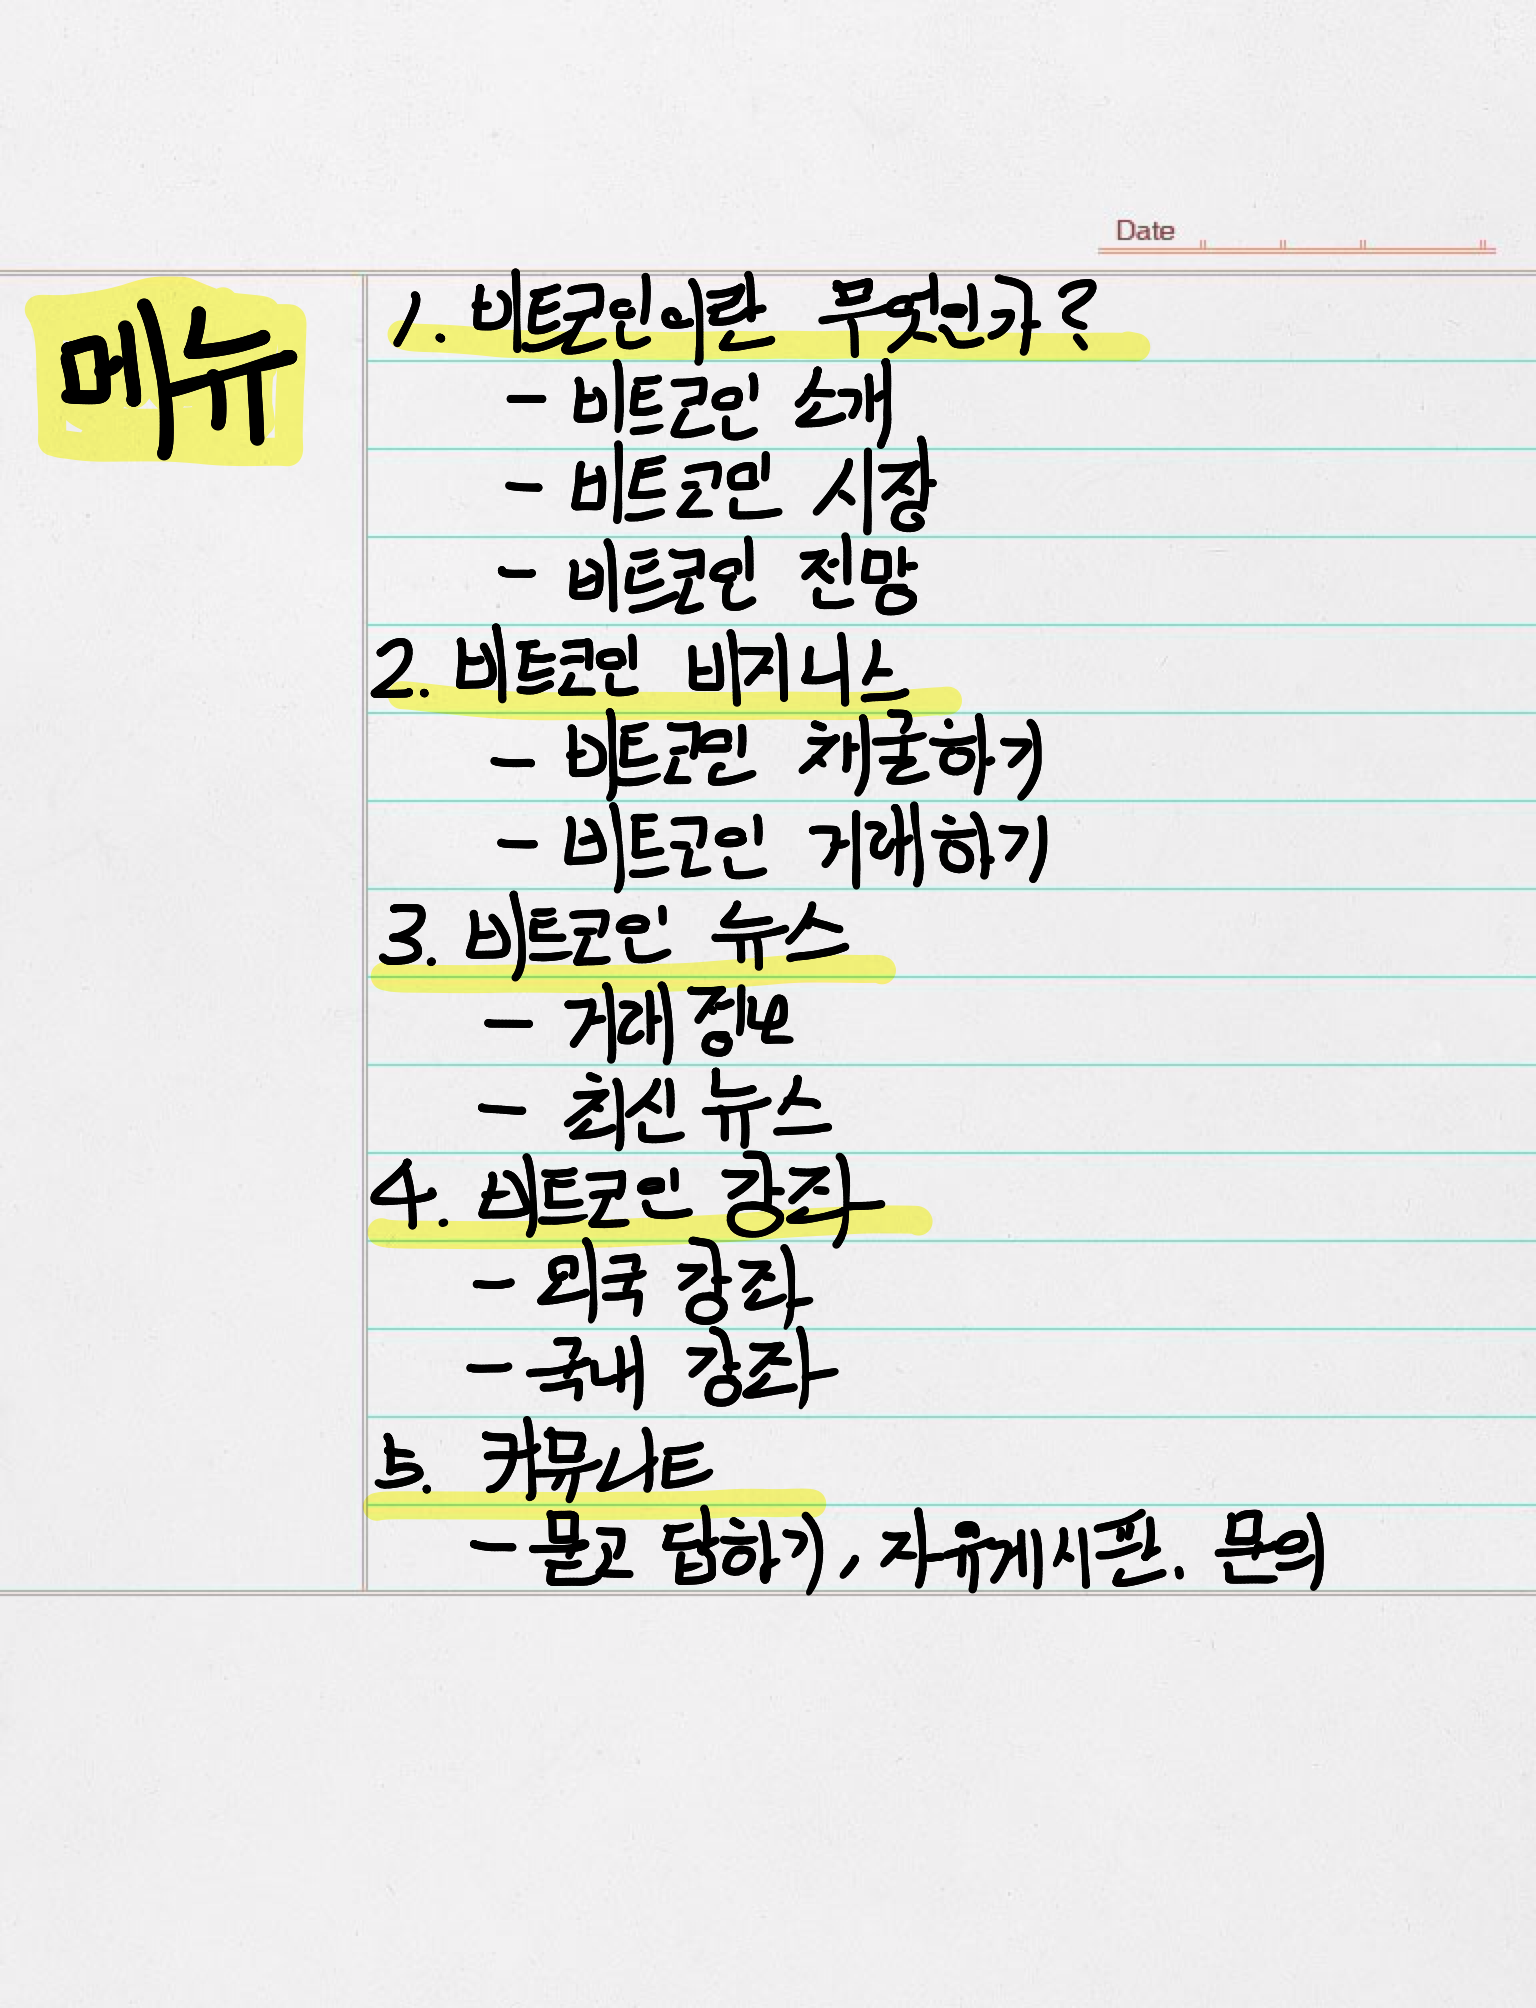 Date
메뉴
1. 비트코인이란 무엇인가?
- 비트코인 소개
- 비트코인 시장
- 비트코인 전망
2. 비트코인 비지니스
- 비트코인 채굴하기
- 비트코인 거래하기
3. 비트코인 뉴스
- 거래 정보
- 최신 뉴스
4. 비트코인 강좌
- 외국 강좌
- 국내 강좌
5. 커뮤니트
- 묻고 답하기, 자유게시판. 문의